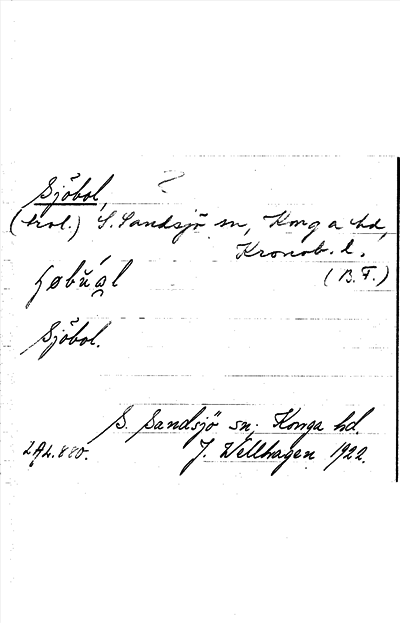 Sjöbol,
(trol.) S. Sandsjö sn, Konga hd,
Kronob. l.
(B.F.)
Sjöbol.
S. Sandsjö sn. Konga hd.
LAL.880. J. Wellhagen 1922.